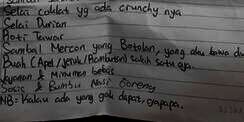 Selai coklat yg ada crunchy nya
Selai Durian
Roti Tawar
Sambal Mercon yang Botolan, yang ada bawa
Buah (Apel / Jeruk / Rambutan) salah satu aja.
Minuman bebas
Sosis & Bumbu Nasi Goreng
NB: Kalau ada yang gak dapat, gapapa.